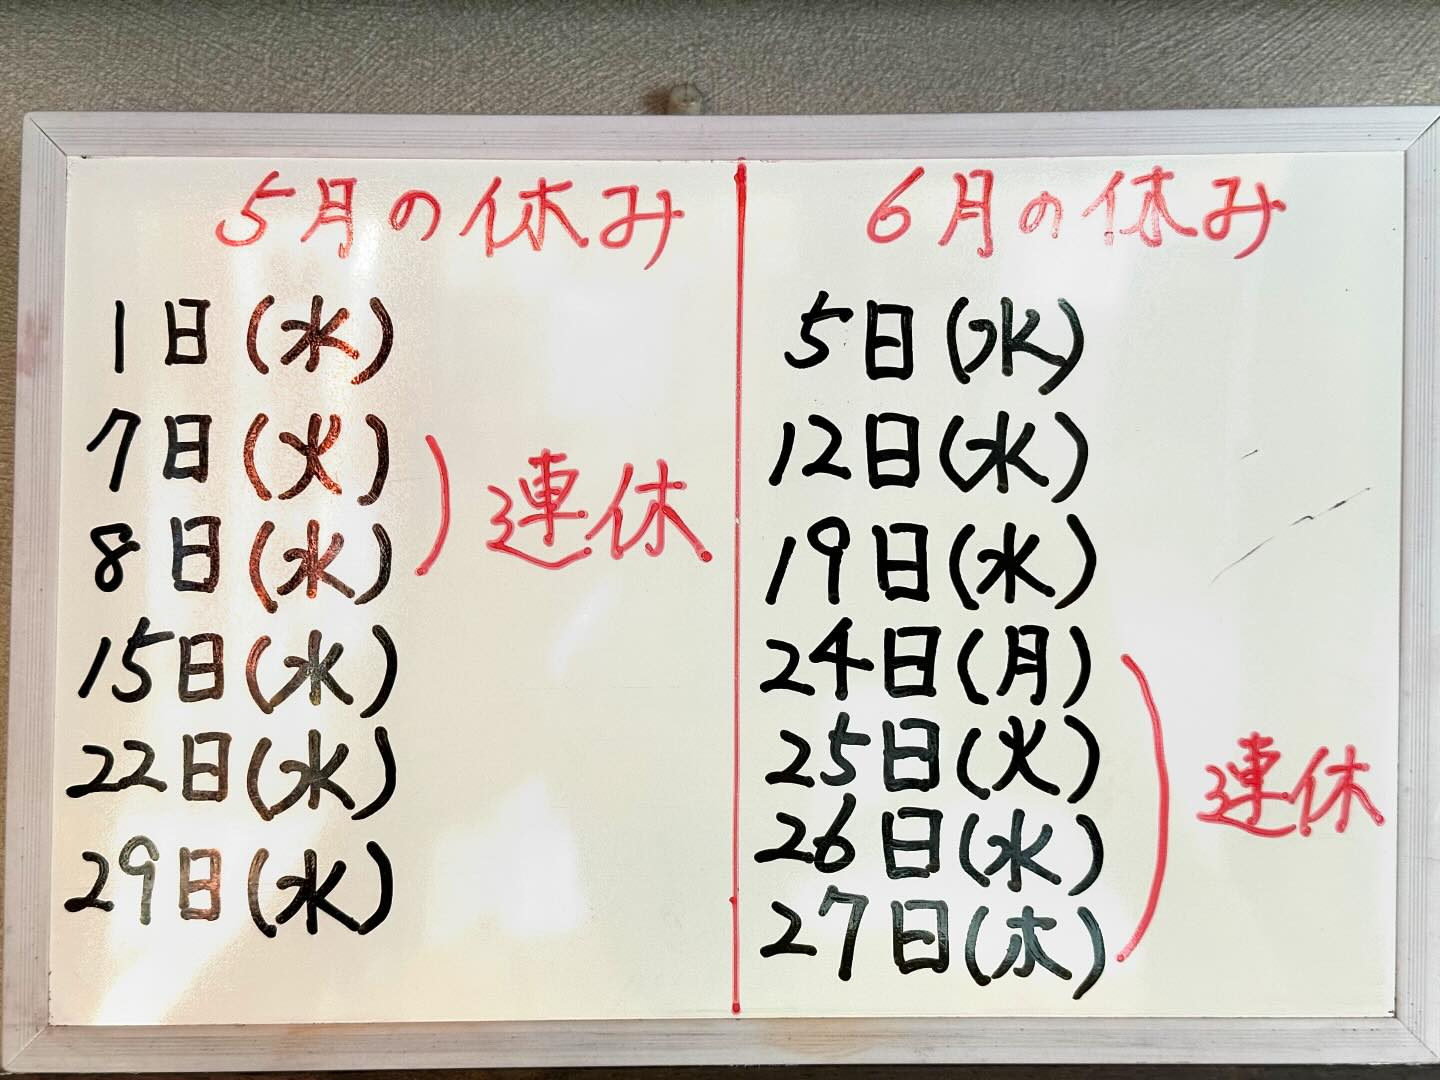 5月の休み
1日(水)
7日(火)
8日(水)
連休
15日(水)
22日(水)
29日(水)
6月の休み
5日(水)
12日(水)
19日(水)
24日(月)
25日(火)
26日(水)
27日(木)
連休